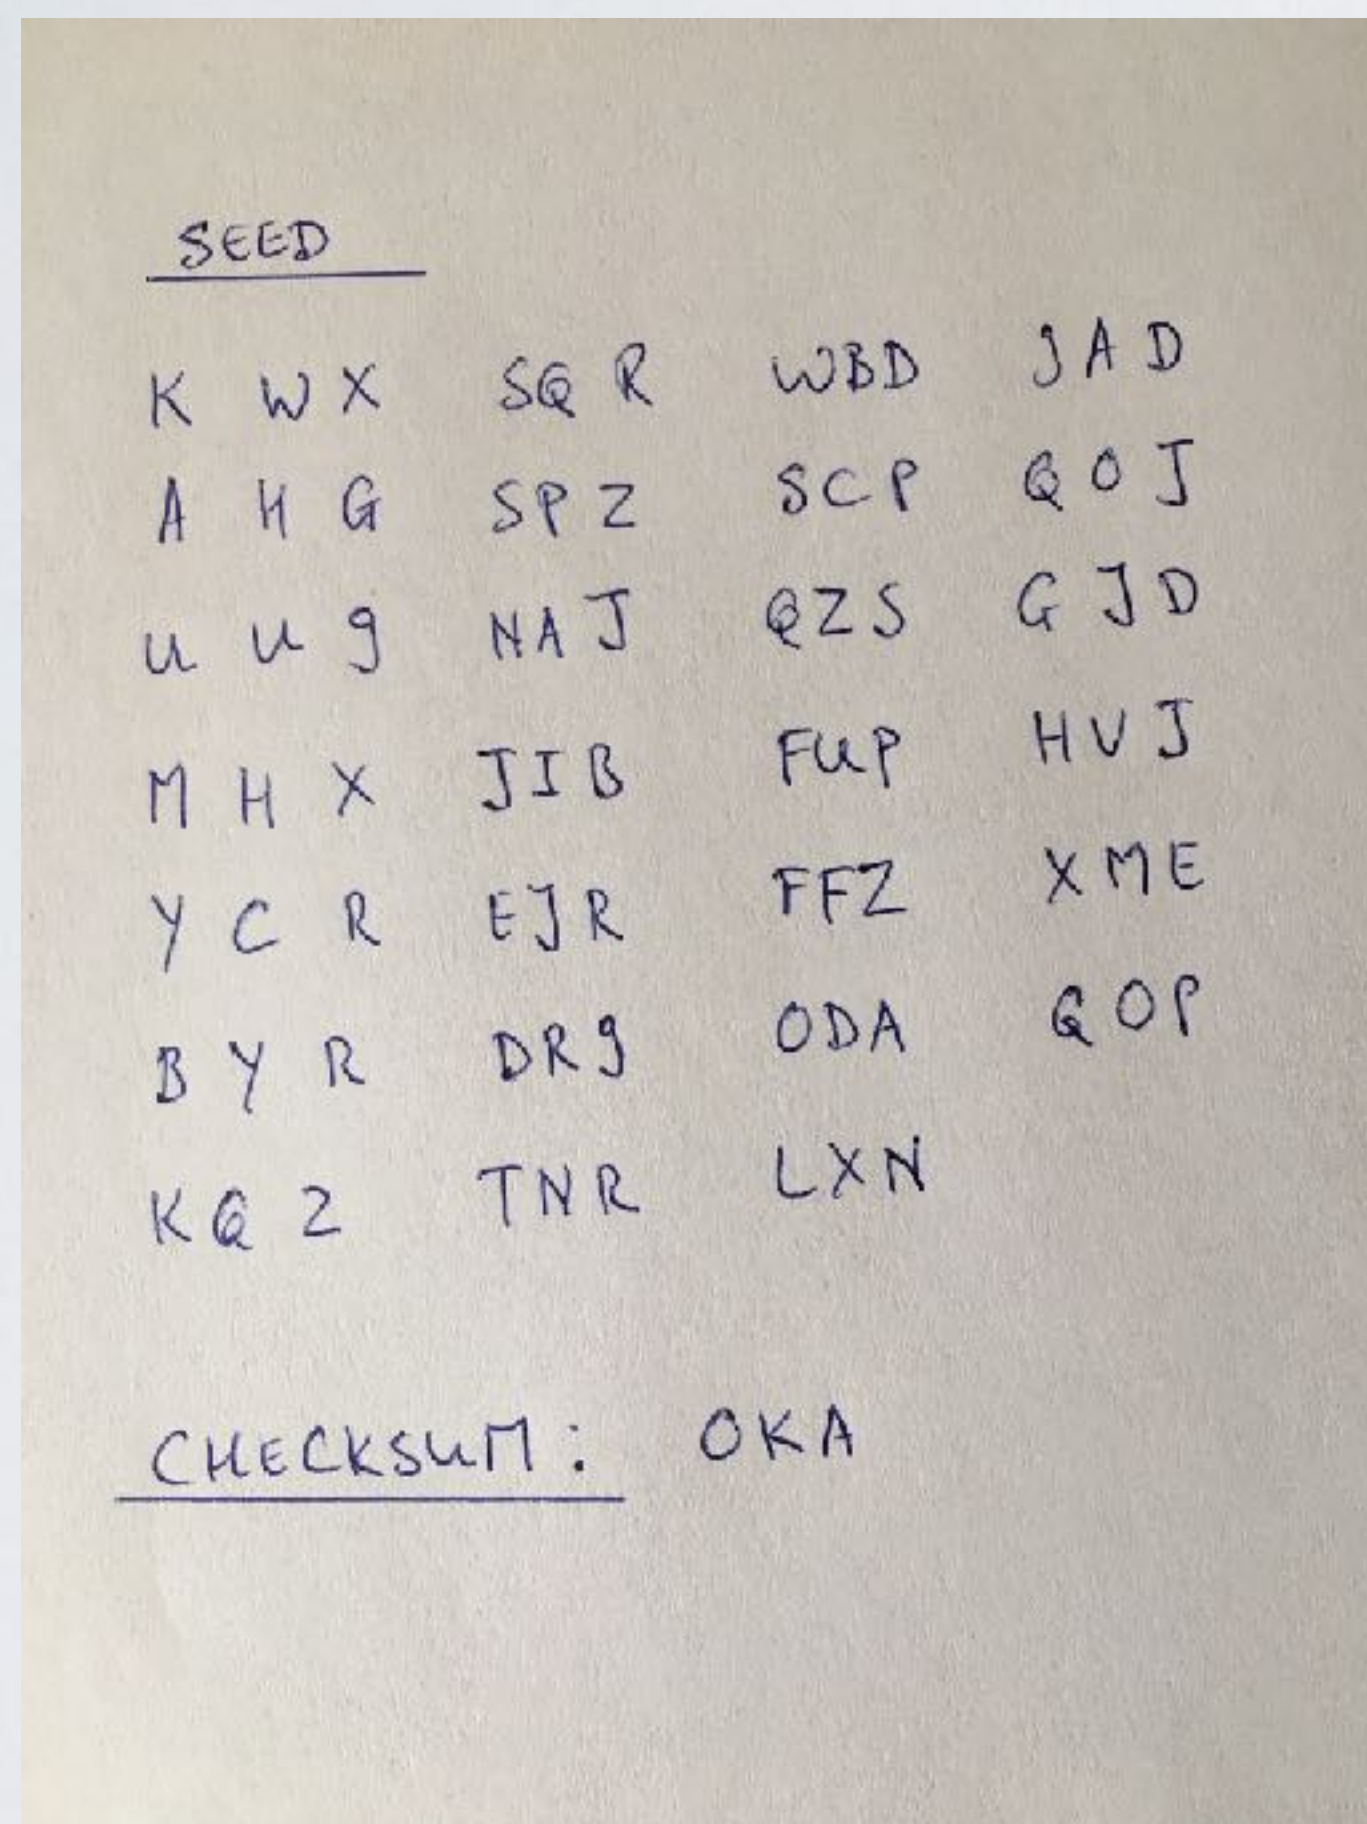 SEED
K W X SQ R WBD JAD
A H G SPZ SCP QOJ
U U 9 NAJ QZS GJD
M H X JIB FUP HVJ
Y C R EJR FFZ XME
B Y R DR9 ODA QOP
KQZ TNR LXN
CHECKSUM: OKA